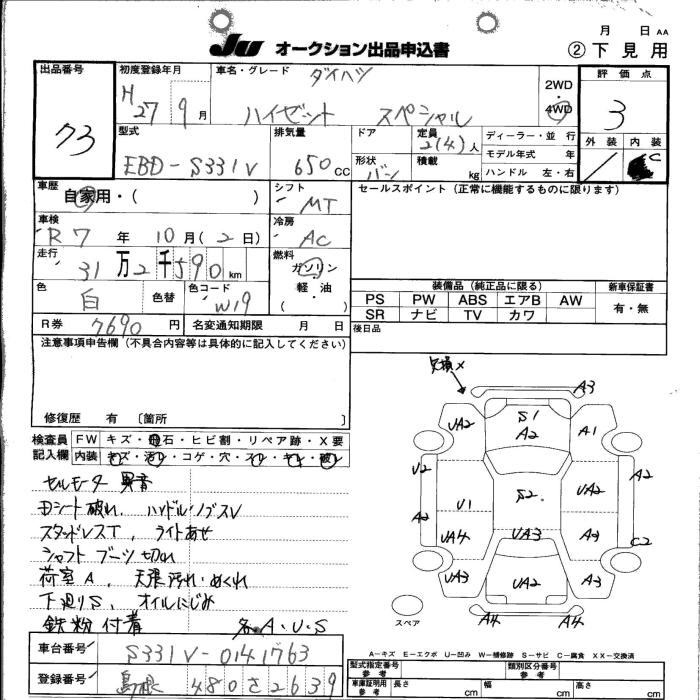 月 日 AA
JU オークション出品申込書 ② 下見用
出品番号 73
初度登録年月 H27 9月
車名・グレード ダイハツ
ハイゼット スペシャル
2WD・4WD
評価点 3
外装 内装 C
型式 EBD-S331V
排気量 650 CC
ドア
形状 バン
定員 2(4)人
積載 kg
ディーラー・並行
モデル年式 年
ハンドル 左・右
車歴 自家用・( )
シフト MT
セールスポイント(正常に機能するものに限ります)
車検 R7年 10月(2日)
冷房 AC
走行 31万2千590km
燃料 ガソリン・軽・油 ( )
色 白 色替 色コード W19
R券 7690円 名変通知期限 月 日
装備品(純正品に限る) 新車保証書
PS PW ABS エアB AW 有・無
SR ナビ TV カワ
後日品
注意事項申告欄(不具合内容等は具体的に記入してください)
修復歴 有 〔箇所 〕
検査員記入欄 FW キズ・飛石・ヒビ割・リペア跡・X要
内装 キズ・汚レ・コゲ・穴・スレ・キレ・破レ
セルモーター異音
Dシート破れ、ハンドル・ノブスレ
スタッドレスT、ライトあせ
シャフトブーツ切れ
荷室A、天張汚れ・めくれ
下廻りS、オイルにじみ
鉄粉付着 各A・U・S
欠損×
A3
UA2 S1 A2 A1
U2 U1 S2 UA2 A2
A2 UA4 UA3 A2 C2
UA3 UA2 A3
A4 A4
スペア
A-キズ E-エクボ U-凹み W-補修跡 S-サビ C-腐食 XX-交換済
車台番号 S331V-0141763
登録番号 島根 480 さ 2639
型式指定番号 参考 類別区分番号 参考
車庫証明用 参考 長さ cm 幅 cm 高さ cm